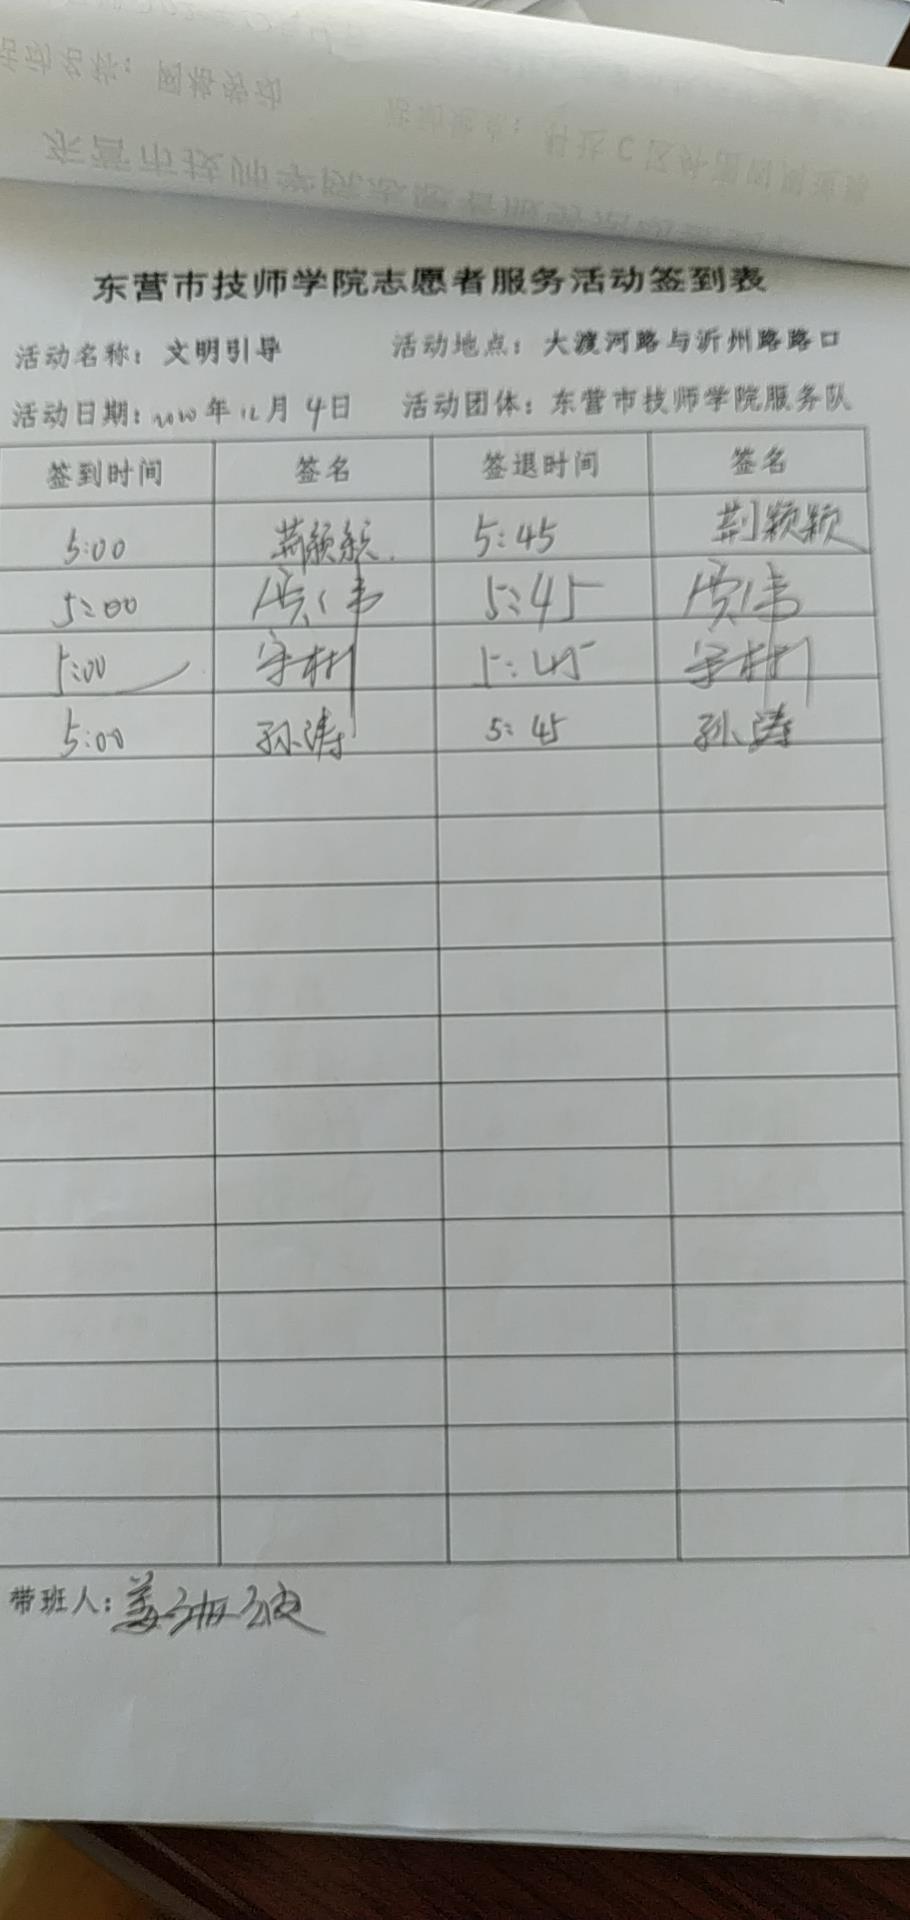 东营市技师学院志愿者服务活动签到表
活动名称：文明引导 活动地点：大渡河路与沂州路路口
活动日期：2020年12月4日 活动团体：东营市技师学院服务队
签到时间 签名 签退时间 签名
5:00 荆颖颖 5:45 荆颖颖
5:00 贾伟 5:45 贾伟
5:00 宇彬 5:45 宇彬
5:00 孙涛 5:45 孙涛
带班人：姜